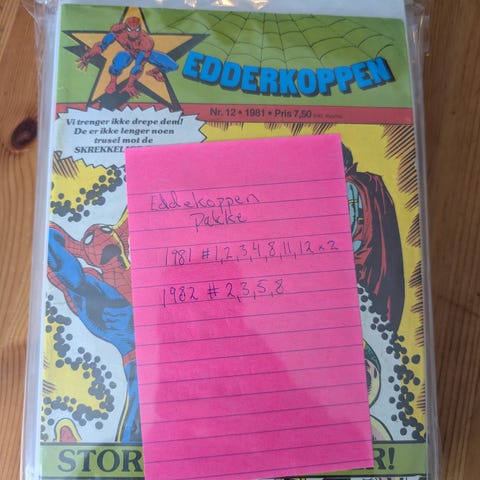 EDDERKOPPEN
Nr. 12 • 1981 • Pris 7,50 inkl. moms
Vi trenger ikke drepe dem!
De er ikke lenger noen
trusel mot de
SKREKKELI
Eddekoppen
Pakke
1981 # 1,2,3,4,8,11,12 x 2
1982 # 2,3,5,8
STOR
R!